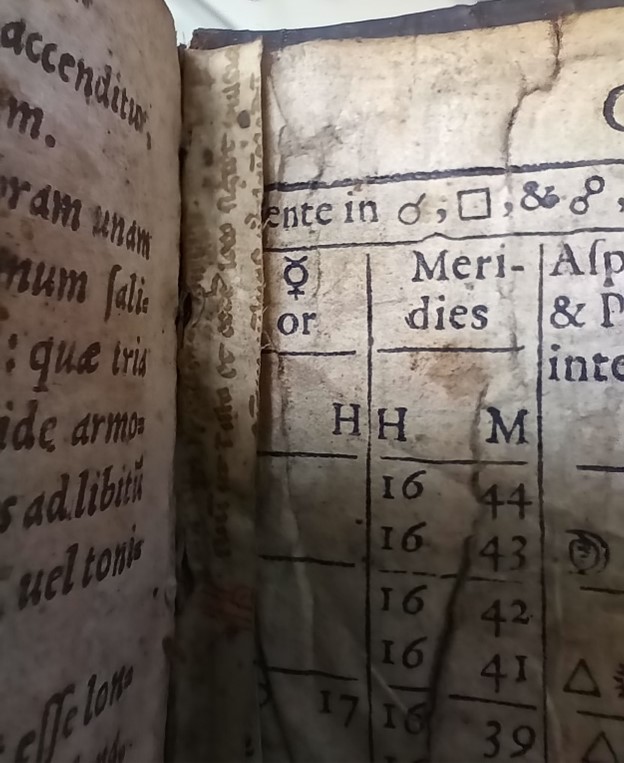 accenditur,
m.
oram unam
num ſali=
: quæ tria
ide armo=
s ad libitũ
uel toni=
eſſe lon=
ente in ☌, □, & ☍,
☿ Meri- Aſp
or dies & P
inte
H H M
16 44
16 43
16 42
16 41
△
17 16 39
△